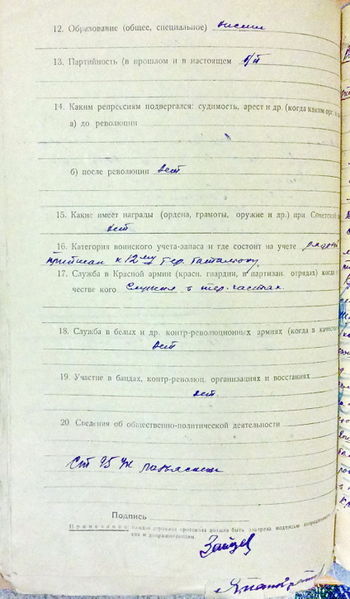 12. Образование (общее, специальное) низшее
13. Партийность (в прошлом и в настоящем б/п
14. Каким репрессиям подвергался: судимость, арест и др. (когда каким орг
а) до революции
б) после революции нет
15. Какие имеет награды (ордена, грамоты, оружие и др.) при Советской
нет
16. Категория воинского учета-запаса и где состоит на учете рядовой
приписан к 12му тер. батальону
17. Служба в Красной армии (красн. гвардии, в партизан. отрядах) когда
честве кого Служил в тер. частях.
18. Служба в белых и др. контр-революционных армиях (когда в качестве
нет
19. Участие в бандах, контр-революц. организациях и восстаниях
нет
20. Сведения об общественно-политической деятельности
Ст 95 УК
Подпись
Примечание: Каждая страница протокола должна быть заверена подписью допрашиваемого
Зайцев